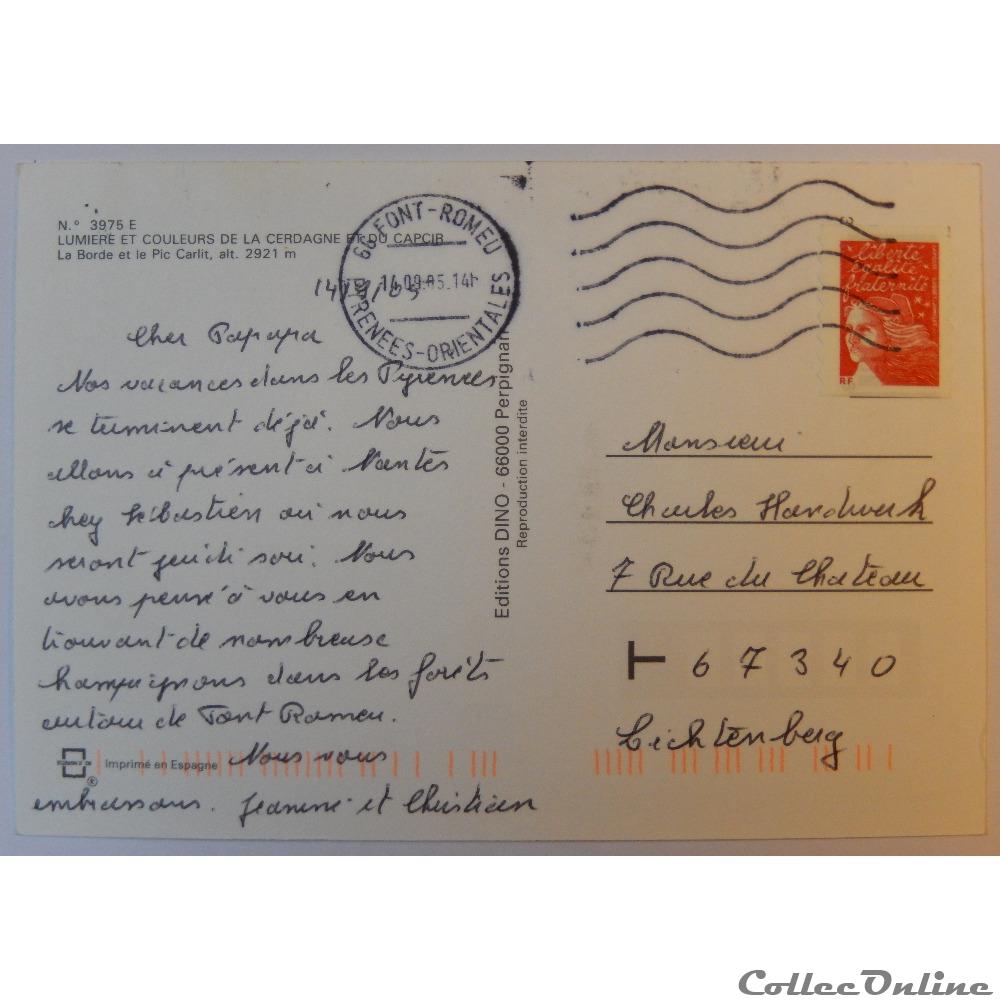 N.° 3975 E
LUMIERE ET COULEURS DE LA CERDAGNE ET DU CAPCIR
La Borde et le Pic Carlit, alt. 2921 m
66 FONT-ROMEU
14.09.05.14h
PYRENEES-ORIENTALES
14/9/05
Cher Papapa
Nos vacances dans les Pyrenees
se terminent déjà. Nous
allons à présent à Nantes
chez Sébastien où nous
seront jeudi soir. Nous
avons pensé à vous en
trouvant de nombreuse
champignons dans les forêts
autour de Font Romeu.
Nous vous
embrassons. Jeannine et Christian
Imprimé en Espagne
Editions DINO - 66000 Perpignan
Reproduction interdite
liberté
égalité
fraternité
RF
Monsieur
Charles Handwerk
7 Rue du Chateau
67340
Lichtenberg
CollecOnline